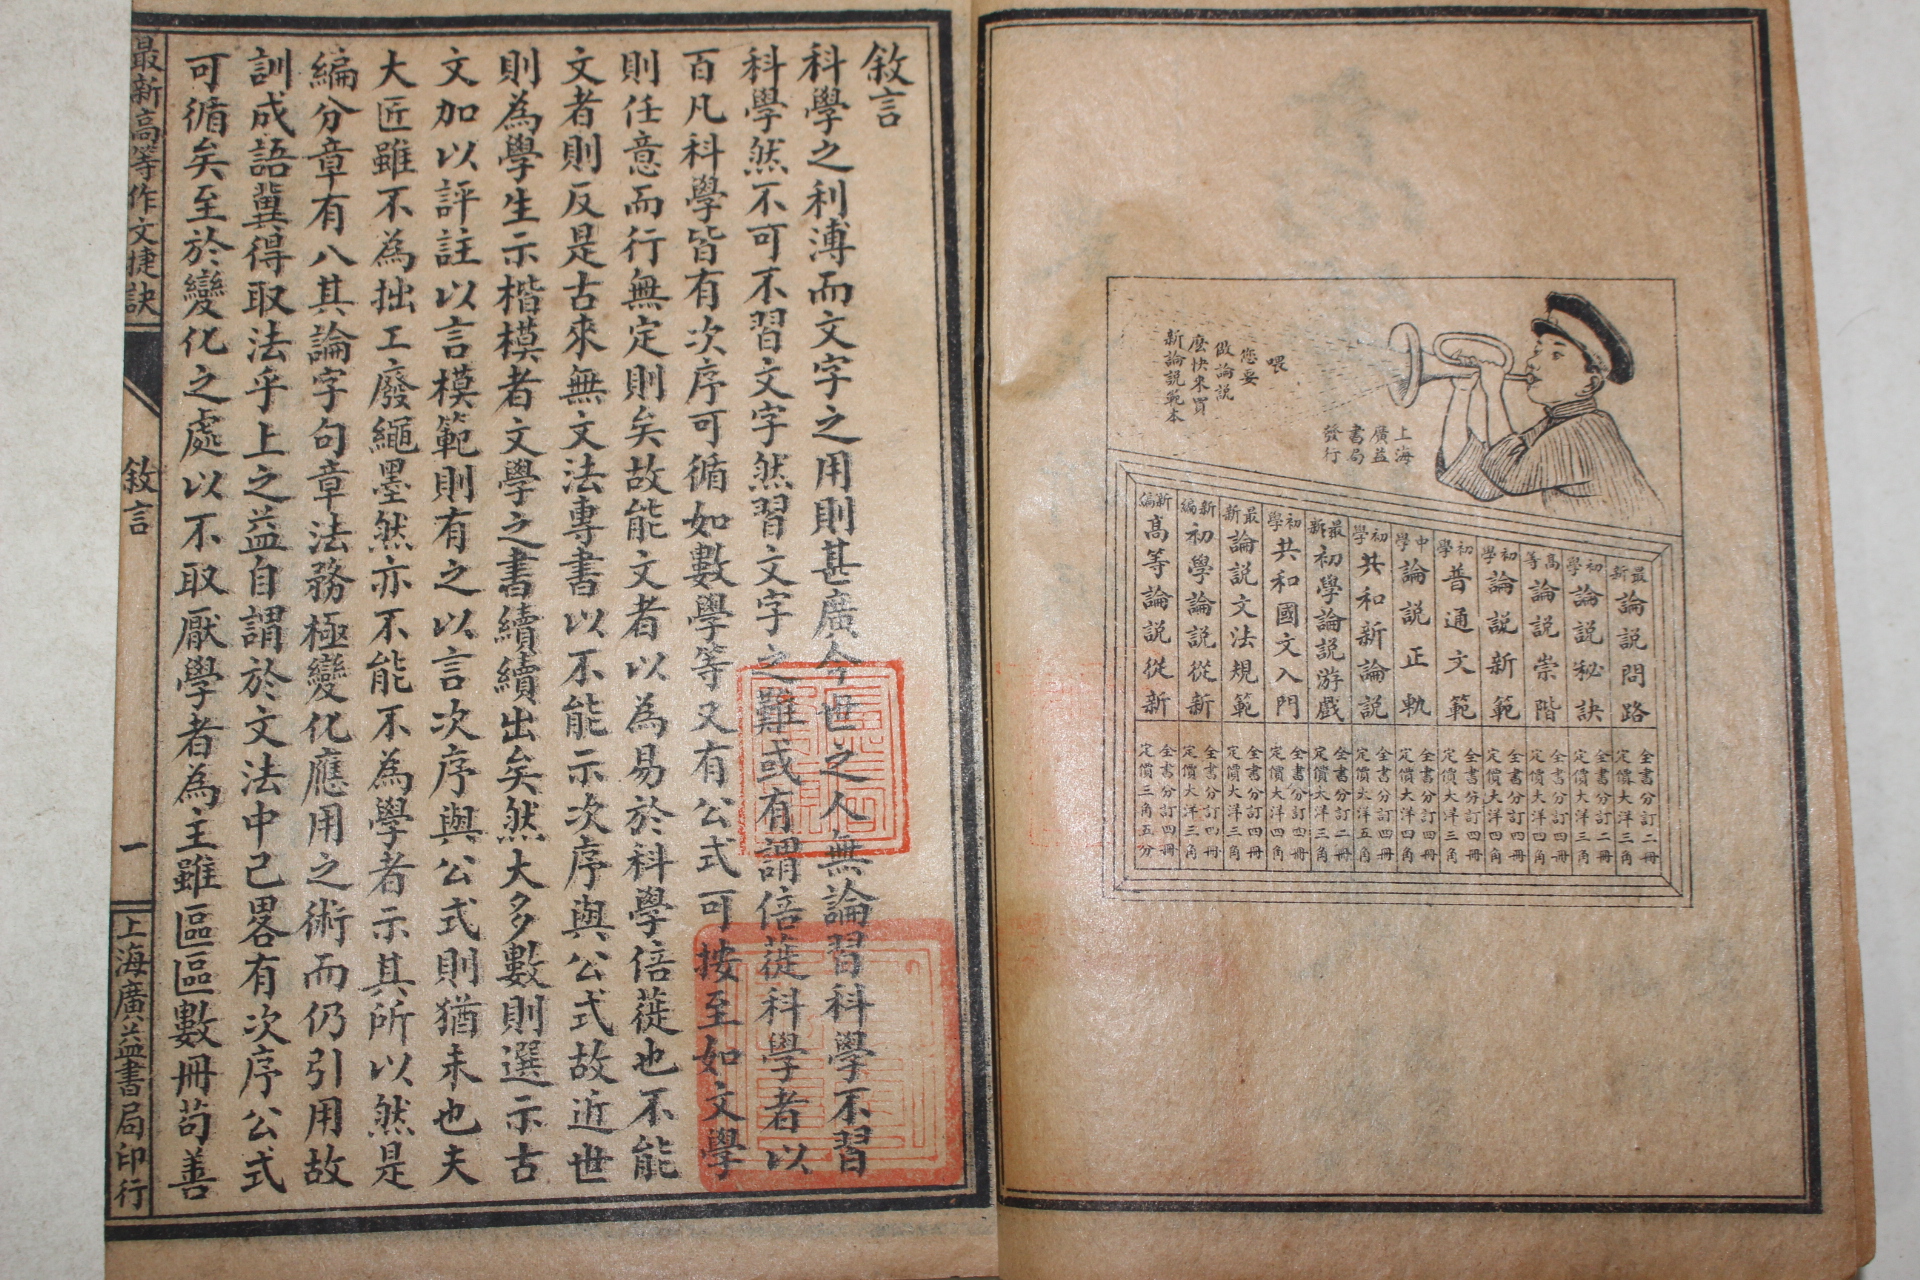 喂
您要
做論說
麼快來買
新論說範本
上海
廣益
書局
發行
最新論說問路
全書分訂二冊
定價大洋三角
初學論說秘訣
全書分訂二冊
定價大洋三角
高等論說崇階
全書分訂四冊
定價大洋四角
初學論說新範
全書分訂四冊
定價大洋四角
初學普通文範
全書分訂四冊
定價大洋三角
中學論說正軌
全書分訂四冊
定價大洋四角
初學共和新論說
全書分訂四冊
定價大洋五角
最新初學論說游戲
全書分訂二冊
定價大洋三角
初學共和國文入門
全書分訂四冊
定價大洋四角
最新論說文法規範
全書分訂四冊
定價大洋三角
新編初學論說從新
全書分訂四冊
定價大洋三角
新編高等論說從新
全書分訂四冊
定價大洋三角五分
敘言
科學之利溥而文字之用則甚廣今世之人無論習科學不習
科學然不可不習文字然習文字之難或有謂倍蓰科學者以
百凡科學皆有次序可循如數學等又有公式可按至如文學
則任意而行無定則矣故能文者以為易於科學倍蓰也不能
文者則反是古來無文法專書以不能示次序與公式故近世
則為學生示楷模者文學之書續續出矣然大多數則選示古
文加以評註以言模範則有之以言次序與公式則猶未也夫
大匠雖不為拙工廢繩墨然亦不能不為學者示其所以然是
編分章有八其論字句章法務極變化應用之術而仍引用故
訓成語冀得取法乎上之益自謂於文法中已畧有次序公式
可循矣至於變化之處以不取厭學者為主雖區區數冊苟善
最新高等作文捷訣
敘言
一
上海廣益書局印行